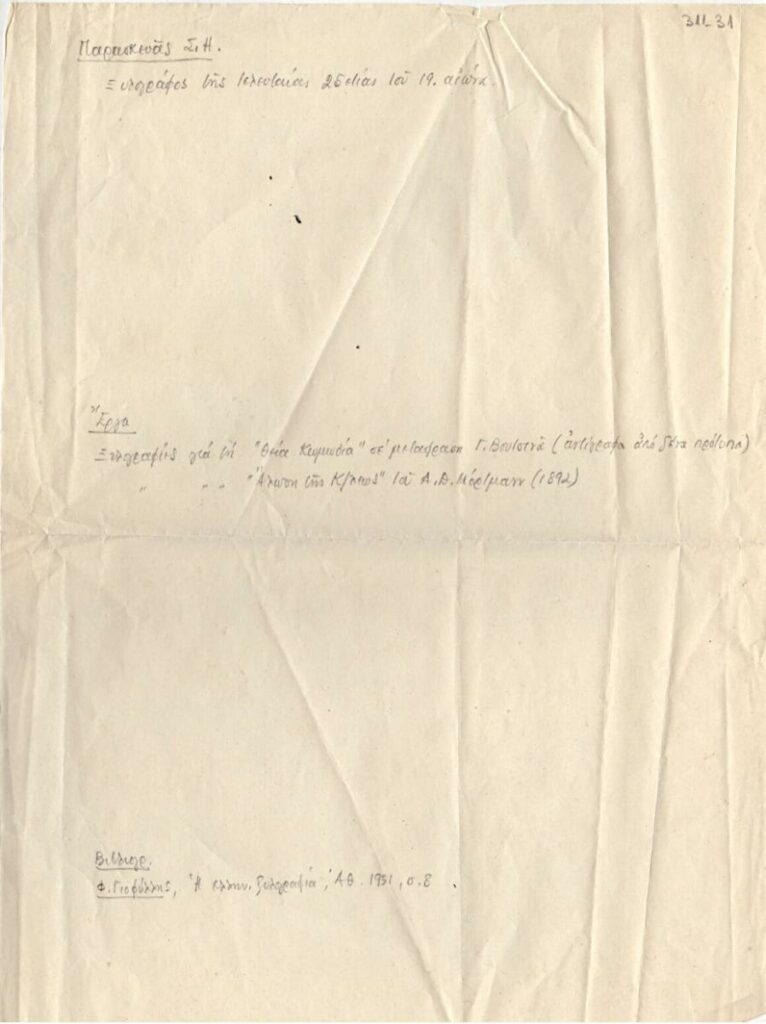 311-31
Παρασκευᾶς Σ. Η.
Ξυλογράφος τῆς τελευταίας 25ετίας τοῦ 19. αἰῶνα.
Ἔργα
Ξυλογραφίες γιά τή "Θεία Κωμωδία" σέ μετάφραση Γ. Βουτσινᾶ (ἀντίγραφα ἀπό ξένα πρότυπα)
" " " "Ἅλωση τῆς Κ/πόλεως" τοῦ Α. Δ. Μόρτμανν (1892)
Βιβλιογρ.
Φ. Γιοφύλλης, Ἡ ἑλλην. ξυλογραφία, Ἀθ. 1931, σ. 8